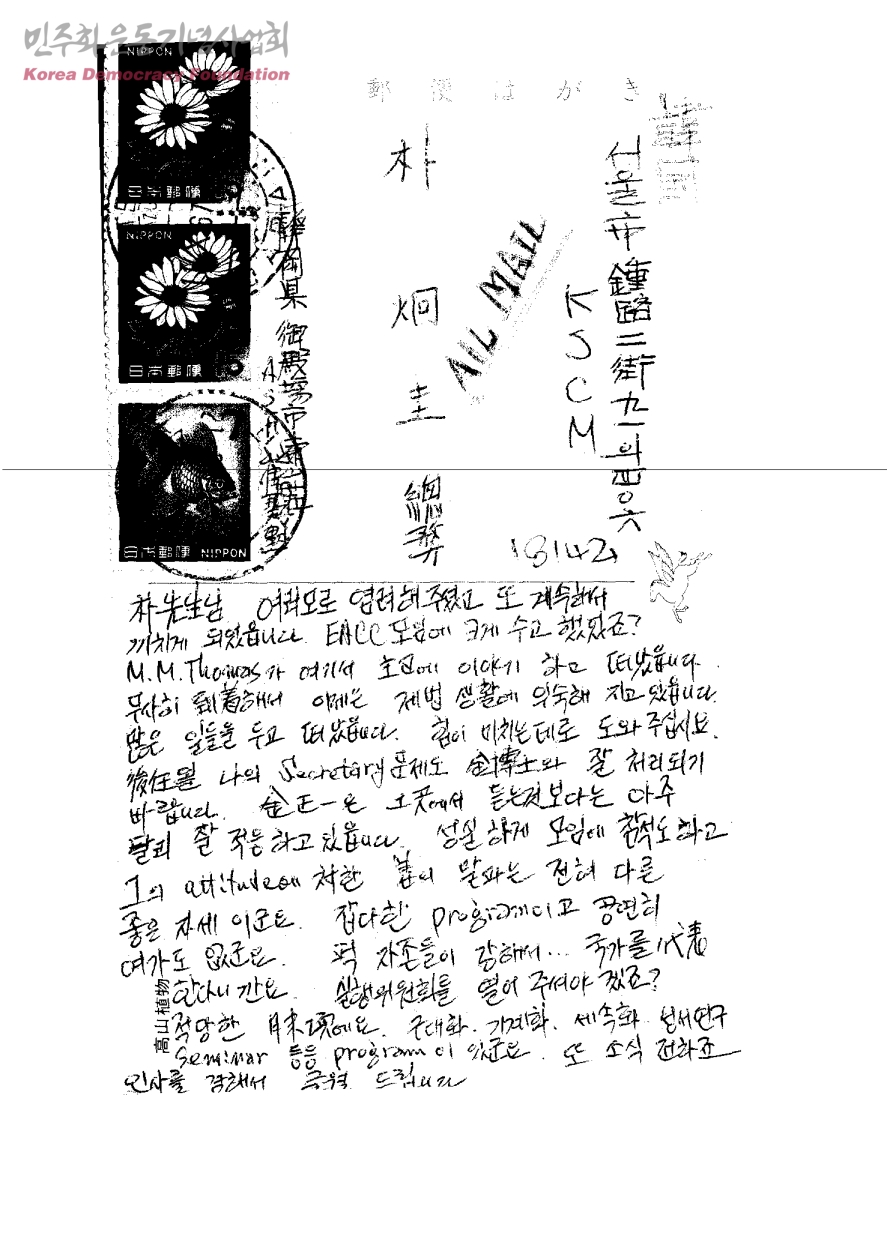 민주화운동기념사업회
Korea Democracy Foundation
NIPPON
日本郵便
NIPPON
日本郵便
日本郵便 NIPPON
郵便はがき
서울市 鍾路二街 九一의 四〇六
KSCM
朴炯圭 總務
AIL MAIL
静岡県 御殿場市 東
18142
朴先生님 여러모로 염려해 주셨고 또 계속해서
끼치게 되었읍니다. EACC 모임에 크게 수고 했었죠?
M.M. Thomas가 여기서 초반에 이야기 하고 떠났읍니다.
무사히 到着해서 이제는 제법 생활에 익숙해 지고 있읍니다.
많은 일들을 두고 떠났읍니다. 힘이 미치는데로 도와 주십시요.
後任될 나의 Secretary 문제도 金博士와 잘 처리되기
바랍니다. 金正一은 그곳에서 듣는것보다는 아주
달리 잘 적응하고 있읍니다. 성실하게 모임에 참석도 하고
그의 attitude에 처한 말과는 전혀 다른
좋은 자세 이군요. 잡다한 program이고 공연히
여가도 없군요. 퍽 자존들이 강해서... 국가를 代表
한다니 깐요. 실행위원회를 열어 주셔야 겠죠?
적당한 에요. 근대화. 기계화. 세속화. 성서연구
Seminar 등등 program이 있군요. 또 소식 전하죠
인사를 겸해서 드립니다
高山植物